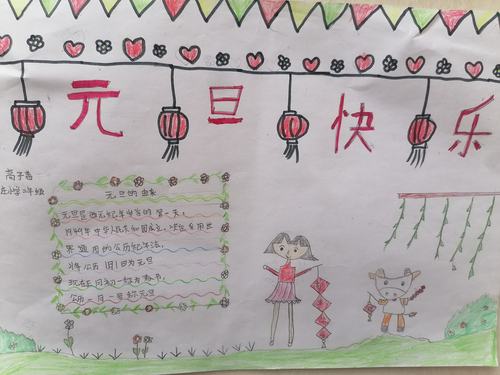 元旦快乐
高子香
庄小学2年级
元旦的由来
元旦是西元纪年岁首的第一天,
1949年中华人民共和国成立,决定采用世
界通用的公历纪年法,
将公历1月1日为元旦
现在正月初一称为春节,
公历一月一号称元旦